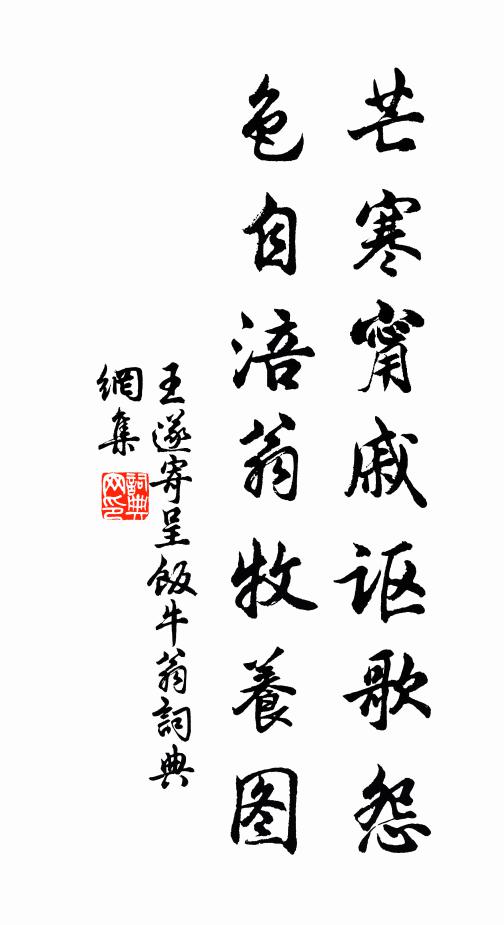 芒寒甯戚讴歌怨
色自涪翁牧養图
王遂寄呈飯牛翁詞典
網集
詞典網印